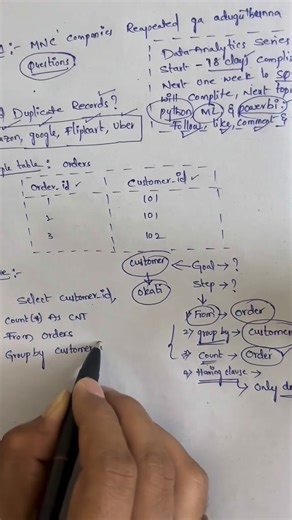 :- MNC Companies Reapeated ga aduguthunna
Questions
Data-Analytics Series
Start - 18 days complit
Next one week lo SQ
Will Complite, Next top
python, ML & powerbi
Follow, like, comment &
Duplicate Records?
zon, google, Flipkart, Uber
ple table : Orders
Order_id Customer_id
1 101
2 101
3 102
customer
Goal → ?
Okati
Step → ?
1) From → order
2) group by → customer
3) Count → Order
4) Having clause →
Only d
Select Customer_id,
Count(*) As CNT
From Orders
Group by Customer